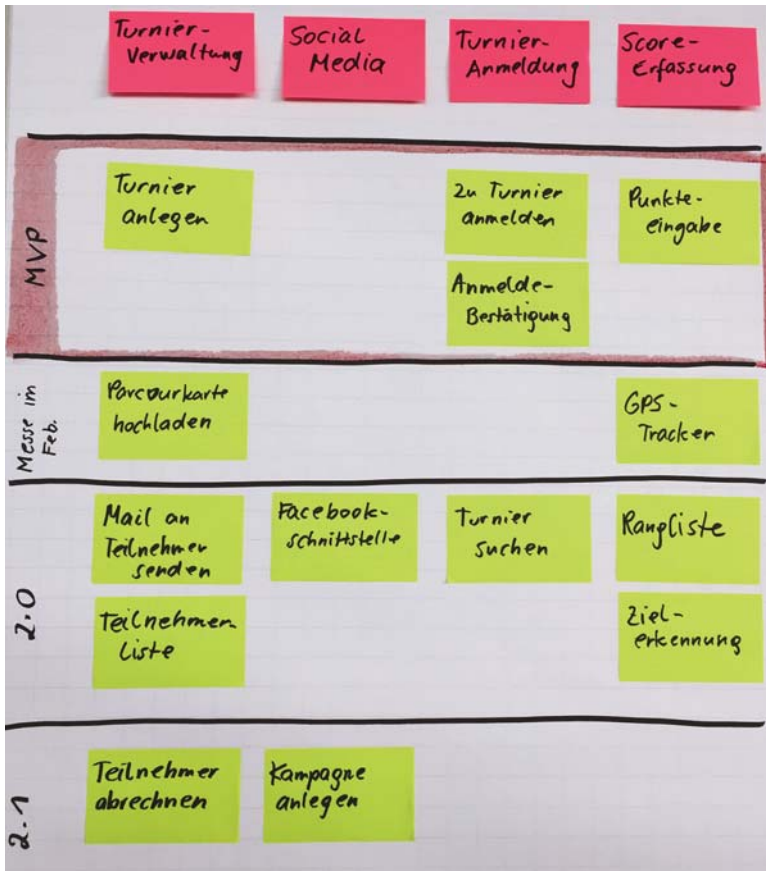 Turnier-
Verwaltung
Social
Media
Turnier-
Anmeldung
Score-
Erfassung
MVP
Turnier
anlegen
Zu Turnier
anmelden
Punkte-
eingabe
Anmelde-
Bestätigung
Messe im
Feb.
Parcourkarte
hochladen
GPS-
Tracker
2.0
Mail an
Teilnehmer
senden
Facebook-
schnittstelle
Turnier
suchen
Rangliste
Teilnehmer-
Liste
Ziel-
erkennung
2.1
Teilnehmer
abrechnen
Kampagne
anlegen